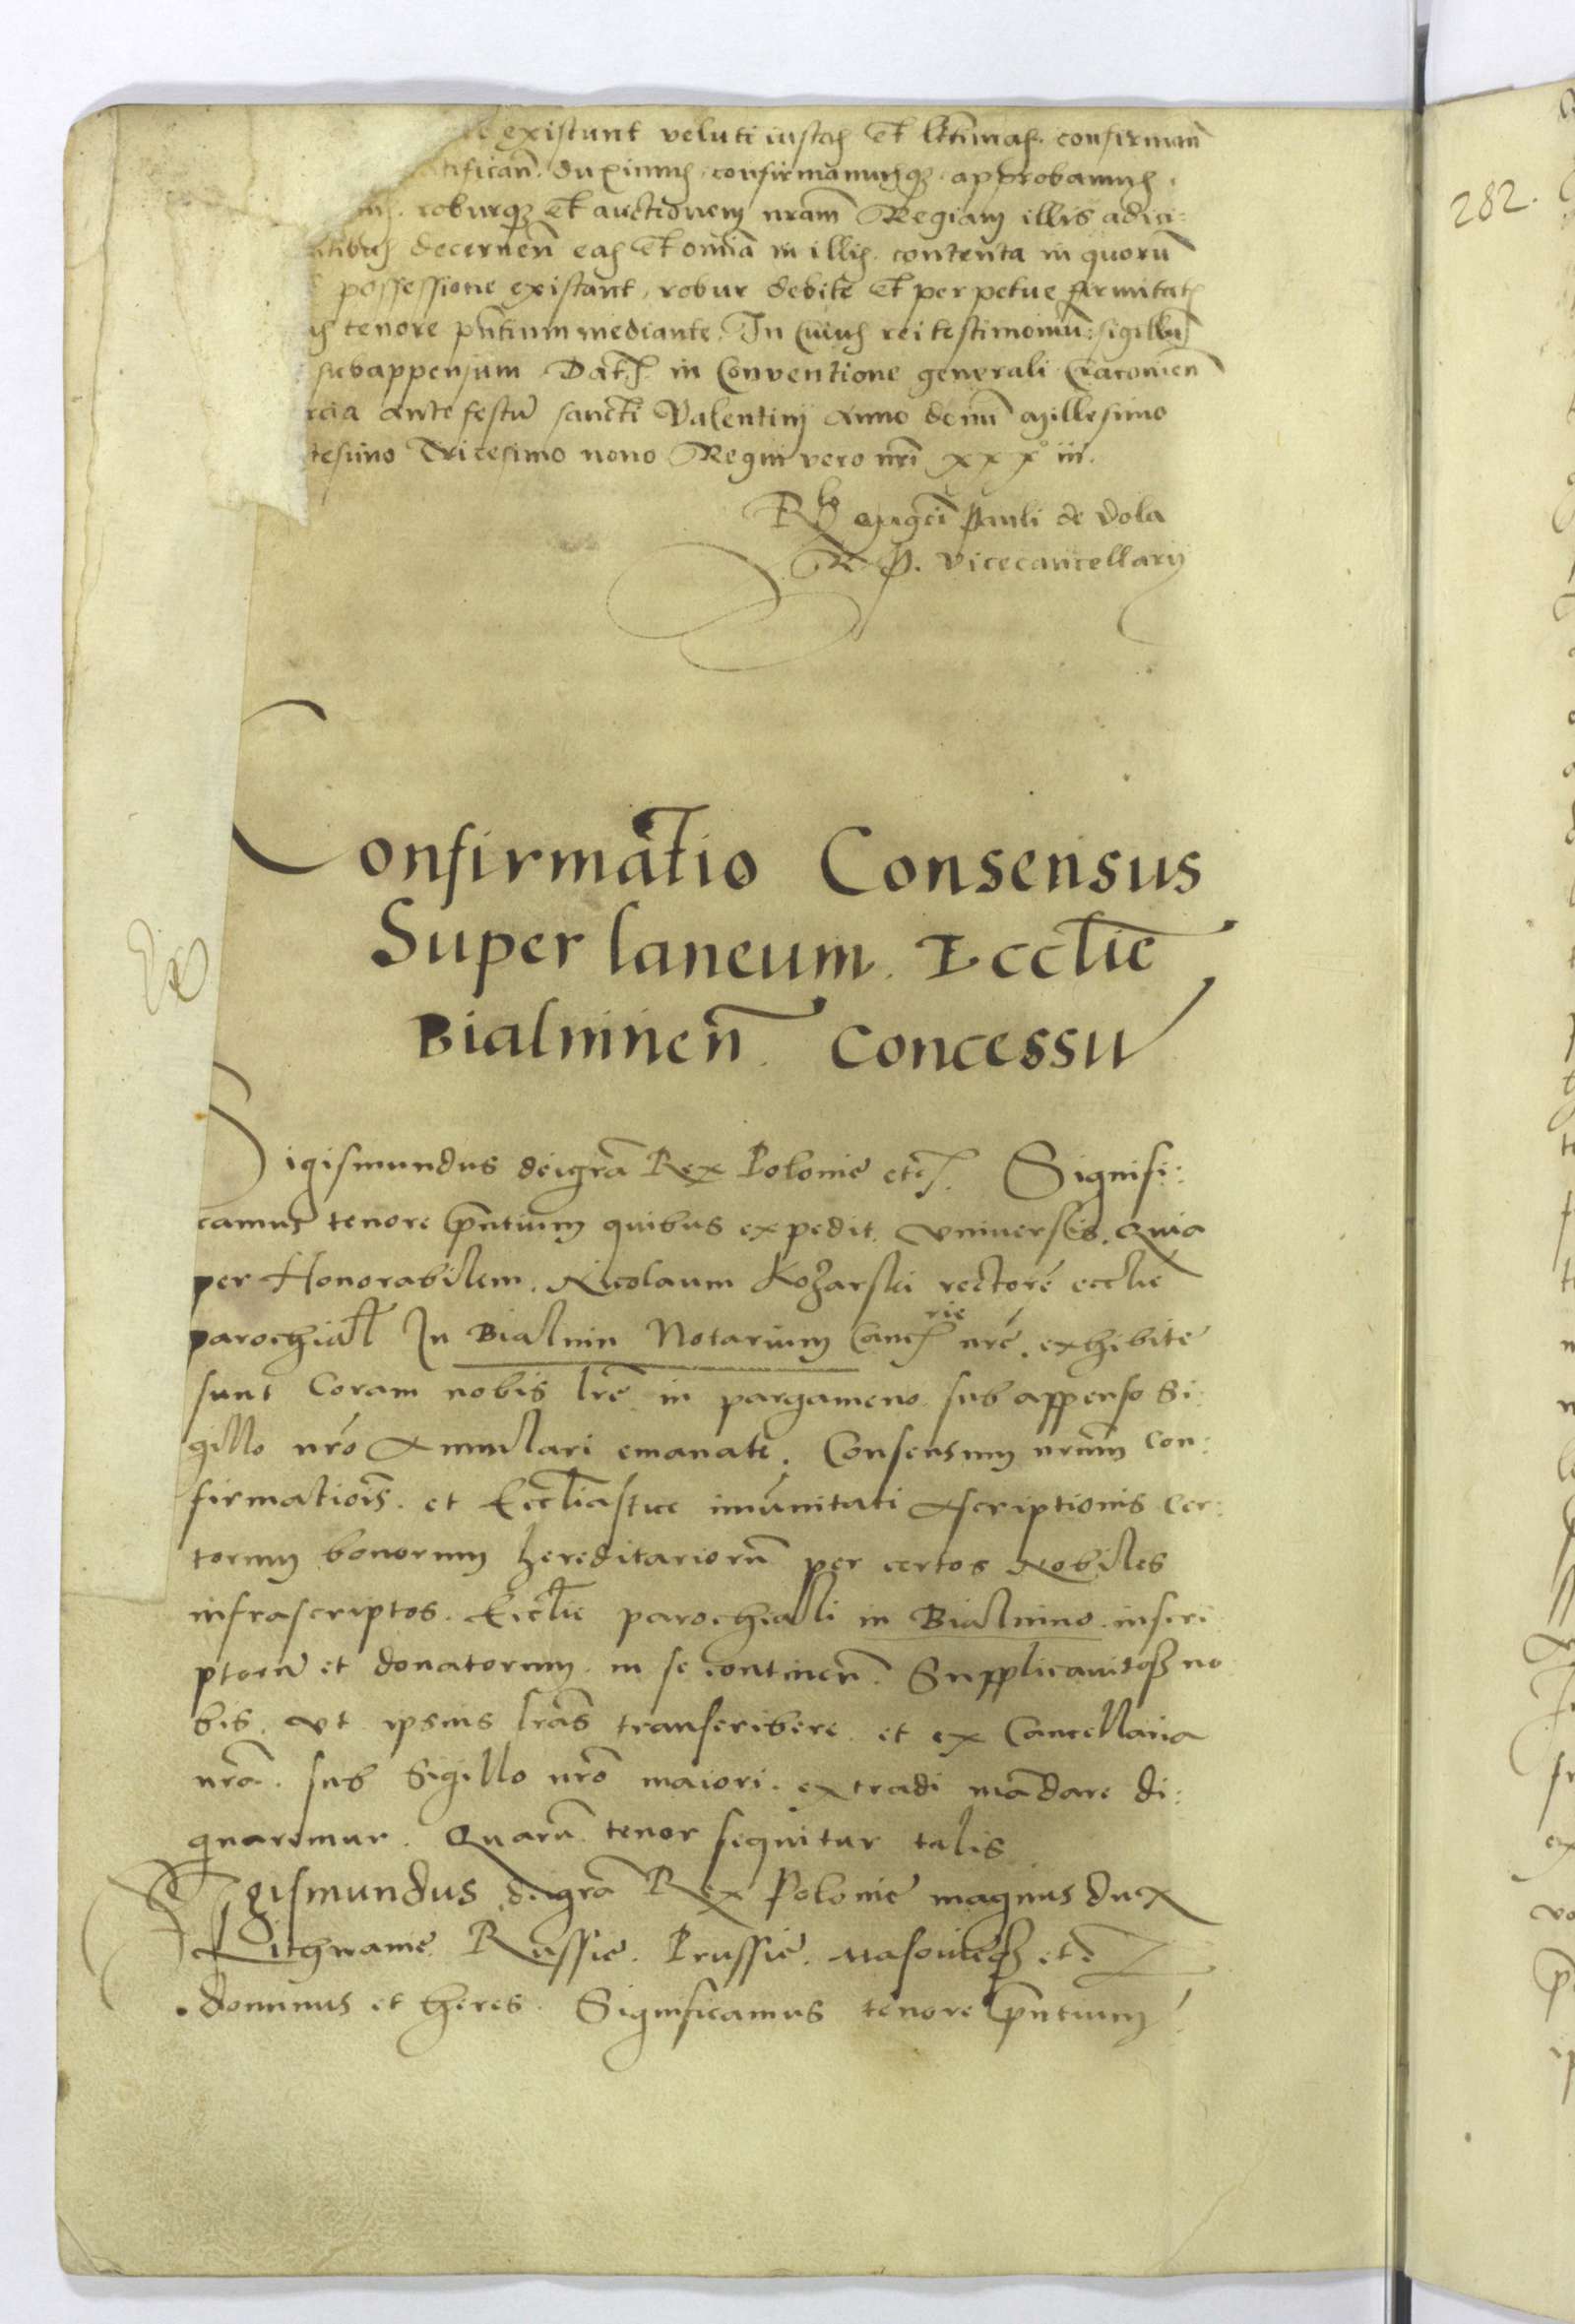 existunt veluti iustas et lr̃timas. confirman̄
ratifican̄. duximus, confirmamusq; approbamus.
roburq; et auctionem nr̃am Regiam illis adici:
decernen̄ eas et omīa in illis. contenta in quorū
possessione existant, robur debite et perpetue firmitatis
tenore pn̄tium mediante. In cuius rei testimoniū: sigillū
subappensum. Dat. in Conventione generali Cracovien̄
ante festū sancti Valentini Anno domī Millesimo
tesimo Tricesimo nono Regni vero nr̄i xxxº iii.
R̄o mag̃ci Pauli de Vola
R. P. vicecancellarij
Confirmatio Consensus
Super laneum. Eccl̄ie
Bialninen̄. Concessu
Sigismundus dei gr̄a Rex Polonie etc. Signifi:
camus tenore pn̄tium quibus expedit. universis. Quia
per Honorabilem. Nicolaum Kozarski rectorē eccl̄ie
parochial̄ In Bialnin Notarium Canc̄rie nr̄e. exhibite
sunt Coram nobis lr̄e in pargameno. sub appenso Si:
gillo nr̄o Annulari emanate. Consensum nr̄um con:
firmatiōis. et Eccl̄iastice imūnitati Ascriptionis cer:
torum bonorum hereditariorū per certos Nobiles
infrascriptos. Eccl̄ie parochiali in Bialnino. inscri
ptorū et donatorum. in se continen̄. Supplicavitq; no
bis. ut ipsius lr̄as transcribere. et ex Cancellaria
nr̄a. sub Sigillo nr̄o maiori. extradi mādare di:
gnaremur. Quarū. tenor sequitur talis
Sigismundus dei gr̄a Rex Polonie magnus dux
Lithwanie. Russie. Prussie. Masovieq; etc
dominus et heres. Significamus tenore pn̄tium
282.